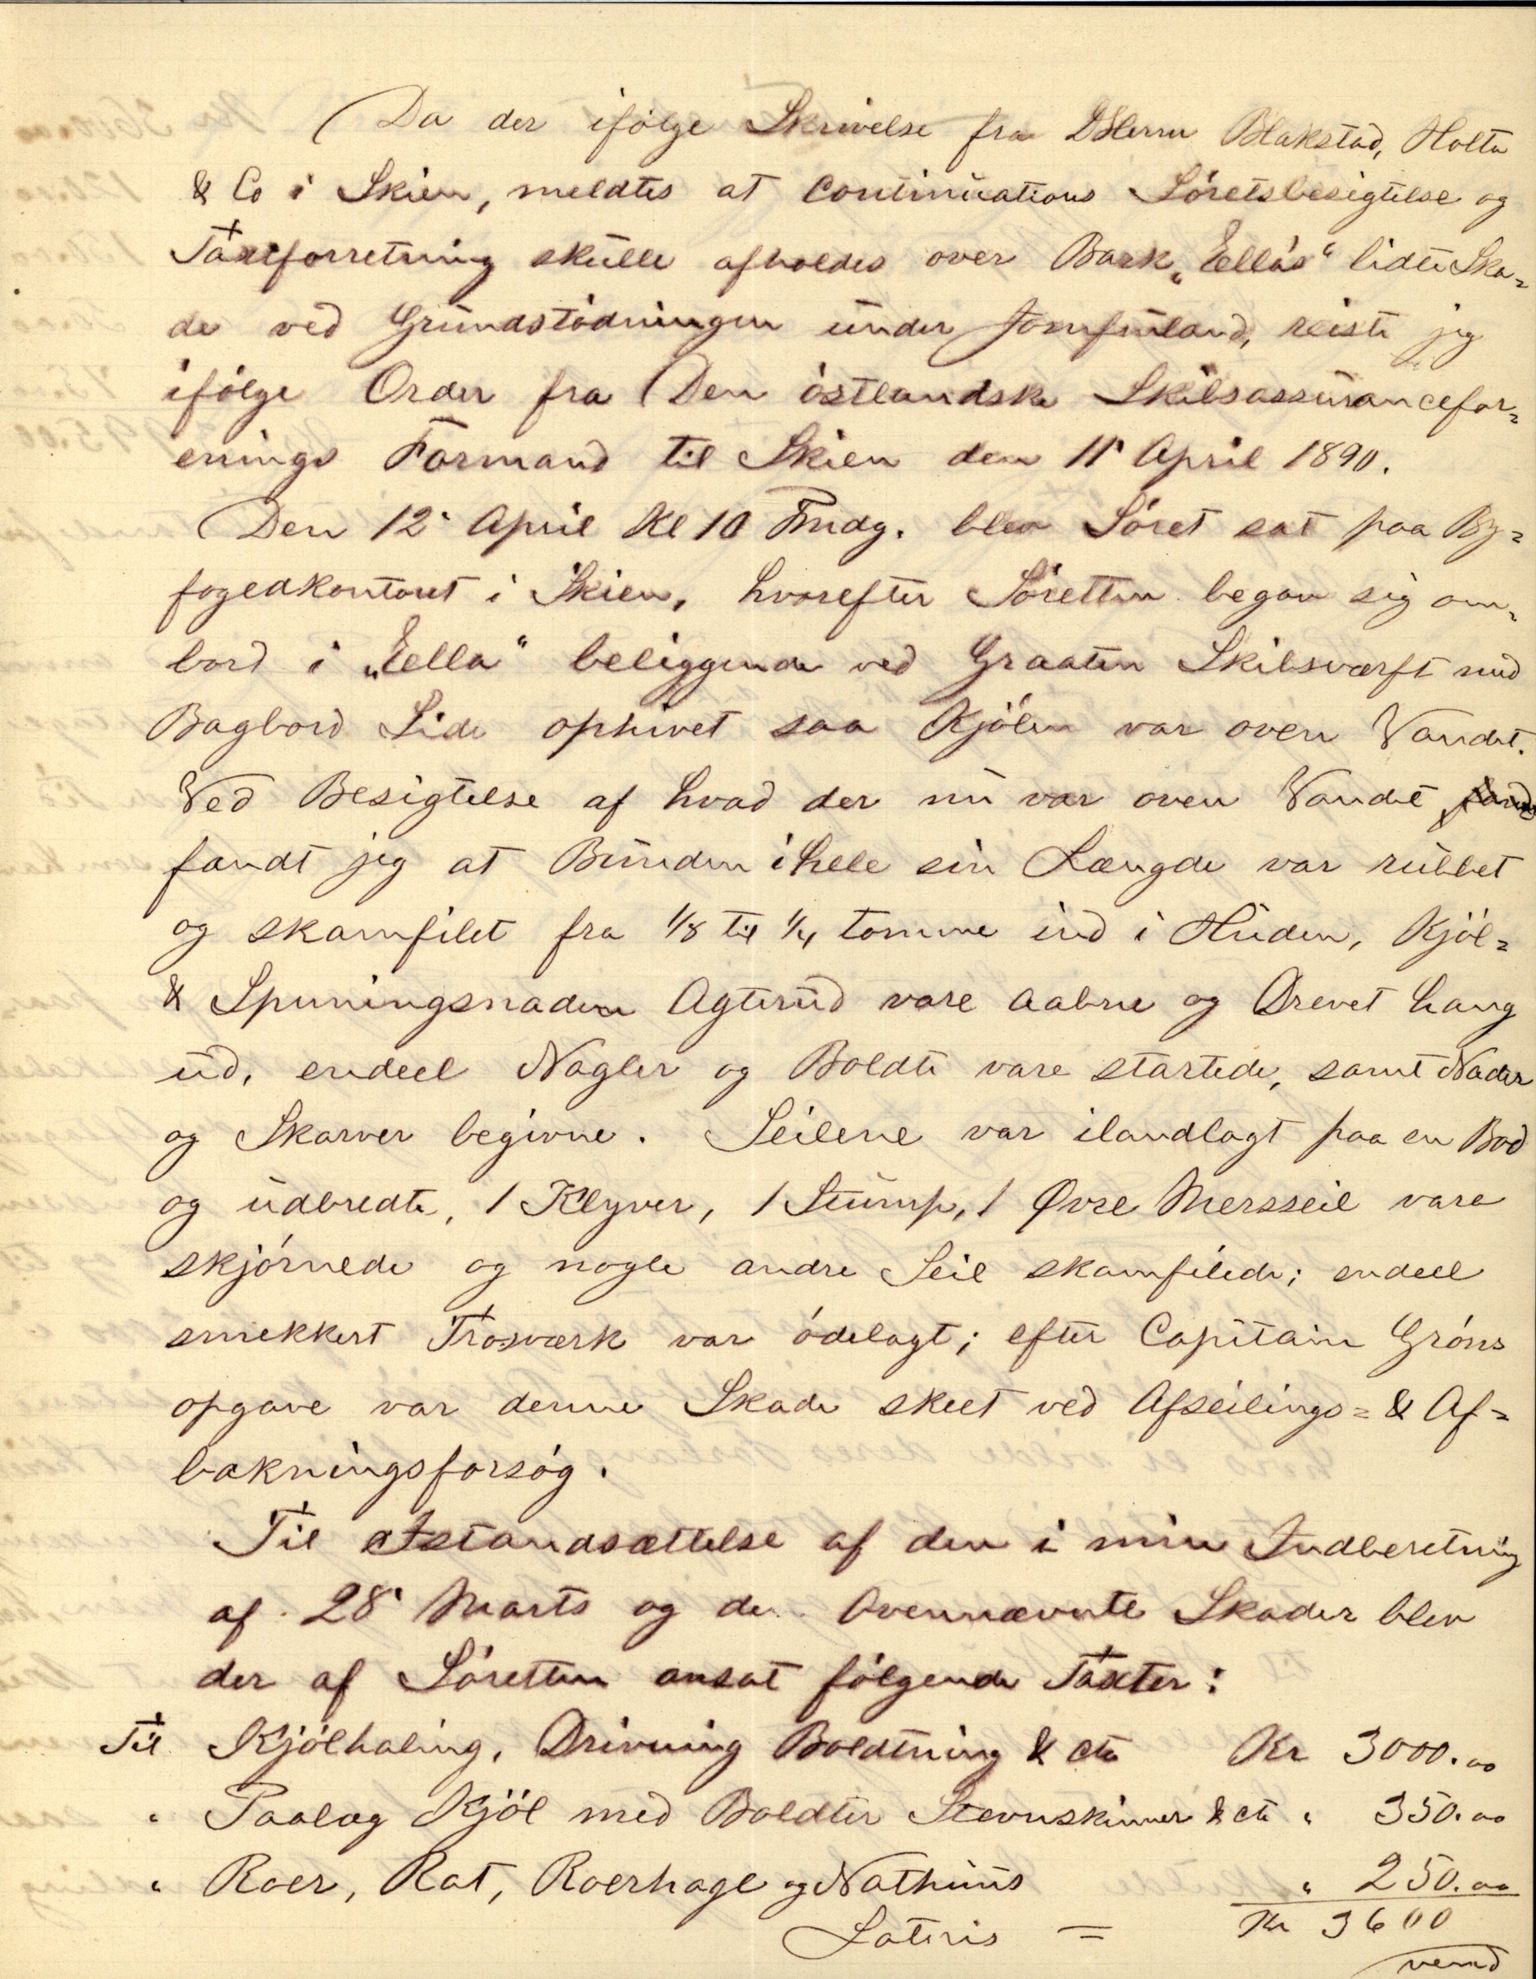 Da der ifølge Skrivelse fra DHerrer Blakstad, Holta
& Co i Skien, meldtes at Continuations Söretsbesigtelse og
Taxtforretning skulle afholdes over Bark „Ellas“ lidte Ska=
de ved Grundstödningen under Jomfruland, reiste jeg
ifölge Order fra Den östlandske Skibsassurancefor=
enings Formand til Skien den 11' April 1890.
Den 12' April Kl 10 Fmdg. blev Söret sat paa By=
fogedkontoret i Skien, hvorefter Söretten begav sig om=
bord i „Ella“ beliggende ved Graaten Skibsværft med
Bagbord Side ophivet saa Kjölen var oven Vandet.
Ved Besigtelse af hvad der nu var oven Vandet
fandt jeg at Bunden i hele sin Længde var rubbet
og skamfilet fra 1/8 til 1/4 tomme ind i Huden, Kjöl=
& Spuningsnaden Agterud vare aabne og Drevet hang
ud, endeel Nagler og Boldte vare startede, samt Nader
og Skarver begivne. Seilene var ilandlagt paa en Bod
og udbredte, 1 Klyver, 1 Stump, 1 Øvre Mersseil vare
skjörnede og nogle andre Seil skamfilede; endeel
smekkert Trosværk var ödelagt; efter Capitain Gröns
opgave var denne Skade skeet ved Afseilings= & Af=
bakningsforsög.
Til Istandsættelse af den i min Indberetning
af 28' Marts og de Ovennævnte Skader blev
der af Söretten ansat fölgende Taxter:
Til Kjölhaling, Drivning Boldtning & cta Kr 3000.00
" Paalag Kjöl med Boldter Stevnskinner & cta " 350.00
" Roer, Rat, Roerhage og Nathuus " 250.00
Lateris = Kr 3600
vend